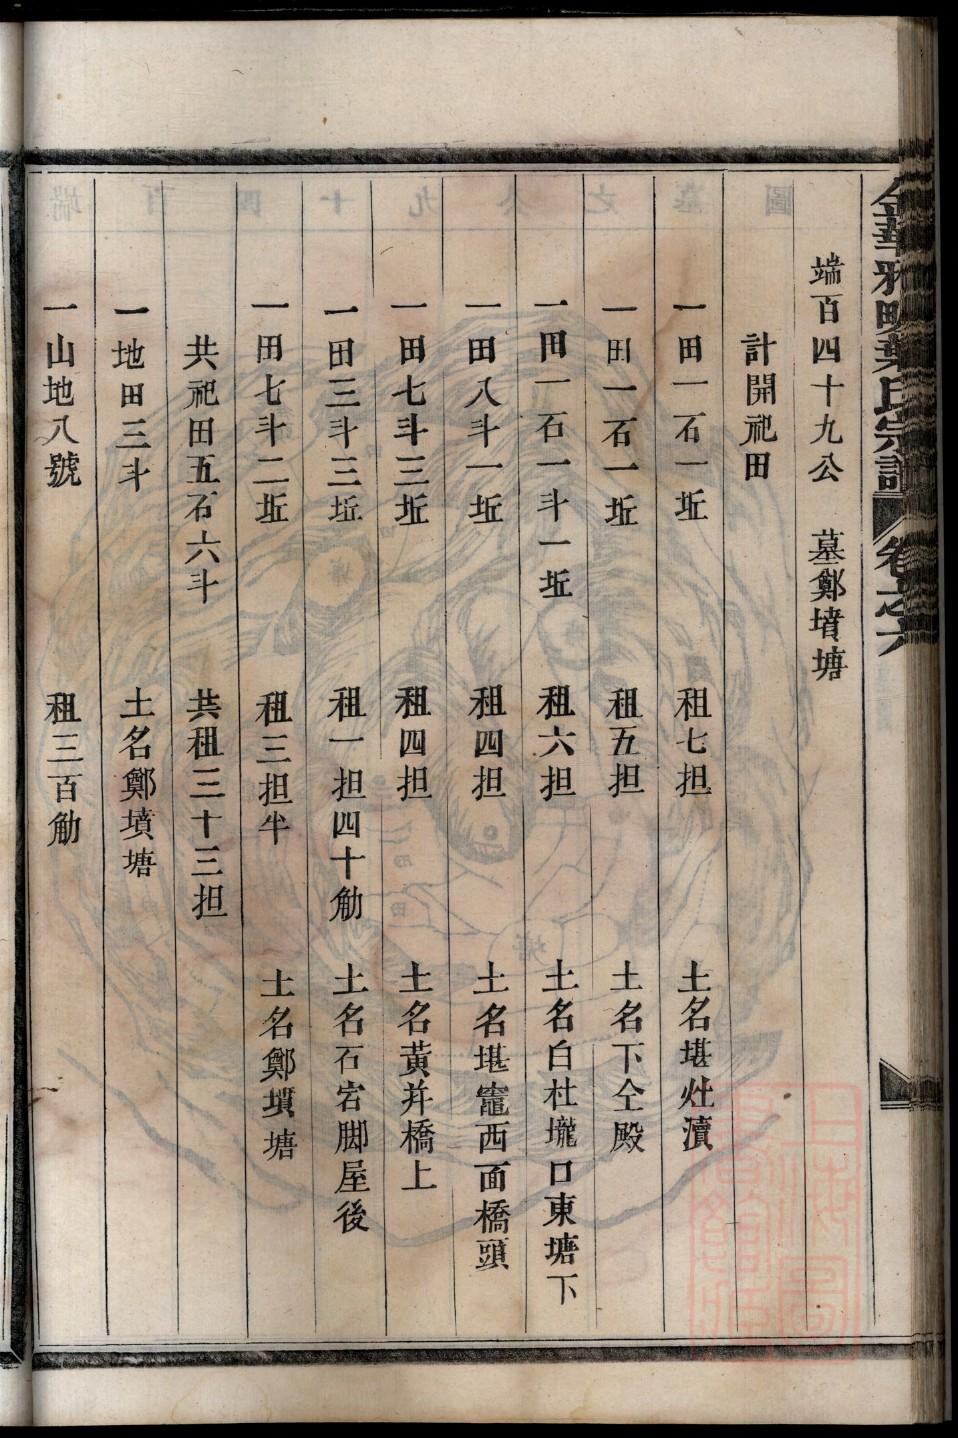 金華雅畈葉氏宗譜 卷之六
端百四十九公 墓鄭墳塘
計開祀田
一田一石一坵 租七担 土名堪灶瀆
一田一石一坵 租五担 土名下仝殿
一田一石一斗一坵 租六担 土名白杜壠口東塘下
一田八斗一坵 租四担 土名堪竈西面橋頭
一田七斗三坵 租四担 土名黃井橋上
一田三斗三坵 租一担四十觔 土名石宕脚屋後
一田七斗二坵 租三担半 土名鄭墳塘
共祀田五石六斗 共租三十三担
一地田三斗 土名鄭墳塘
一山地八號 租三百觔